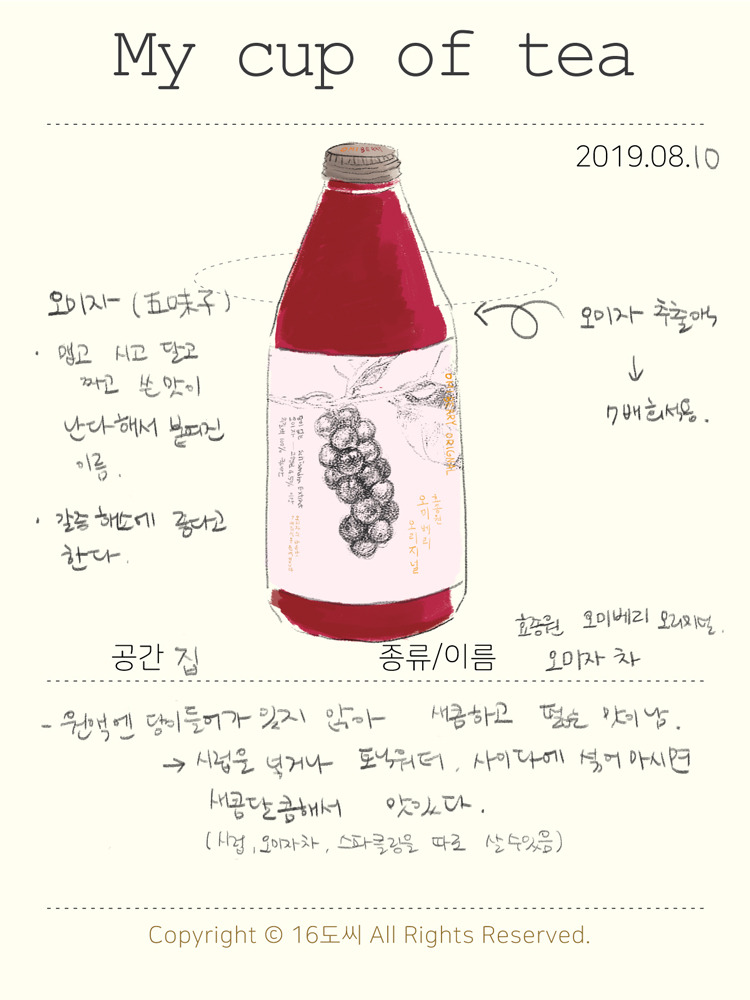 My cup of tea
2019.08.10
오미자 (五味子)
· 맵고 시고 달고
짜고 쓴 맛이
난다해서 붙여진
이름.
· 갈증해소에 좋다고
한다.
오미자 추출액
↓
7배 희석용.
Schisandra
ORIGINAL
오미베리
오리지널
공간 집
종류/이름
효종원 오미베리 오리지널.
오미자 차
- 원액엔 당이 들어가 있지 않아 새콤하고 떫은 맛이 남.
→ 시럽을 넣거나 토닉워터, 사이다에 섞어 마시면
새콤달콤해서 맛있다.
(시럽, 오미자차, 스파클링을 따로 살 수 있음)
Copyright © 16도씨 All Rights Reserved.